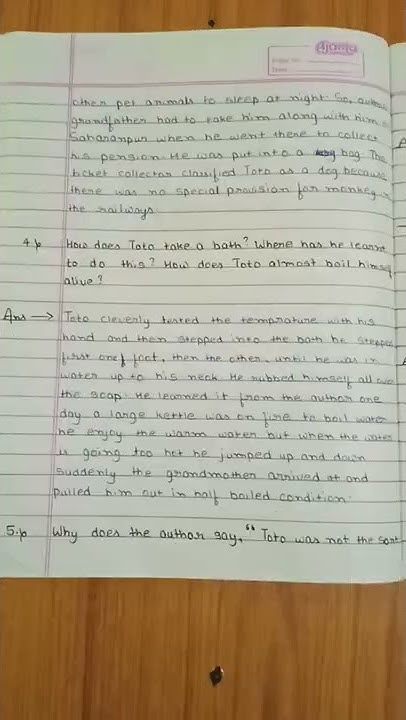 Ajanta
other pet animals to sleep at night. So,
grandfather had to take him along with him
Saharanpur when he went there to collect
his pension. He was put into a bag. The
ticket collector classified Toto as a dog because
there was no special provision for monkey in
the railways
4.p How does Toto take a bath? Where has he learnt
to do this? How does Toto almost boil himself
alive?
Ans → Toto cleverly tested the temprature with his
hand and then stepped into the bath he stepped
first one foot, then the other, until he was in
water up to his neck He rubbed himself all over
the soap. He learned it from the author one
day a large kettle was on fire to boil water
he enjoy the warm water but when the water
is going too hot he jumped up and down
suddenly the grandmother arrived at and
pulled him out in half boiled condition.
5.p Why does the author say, "Toto was not the sort